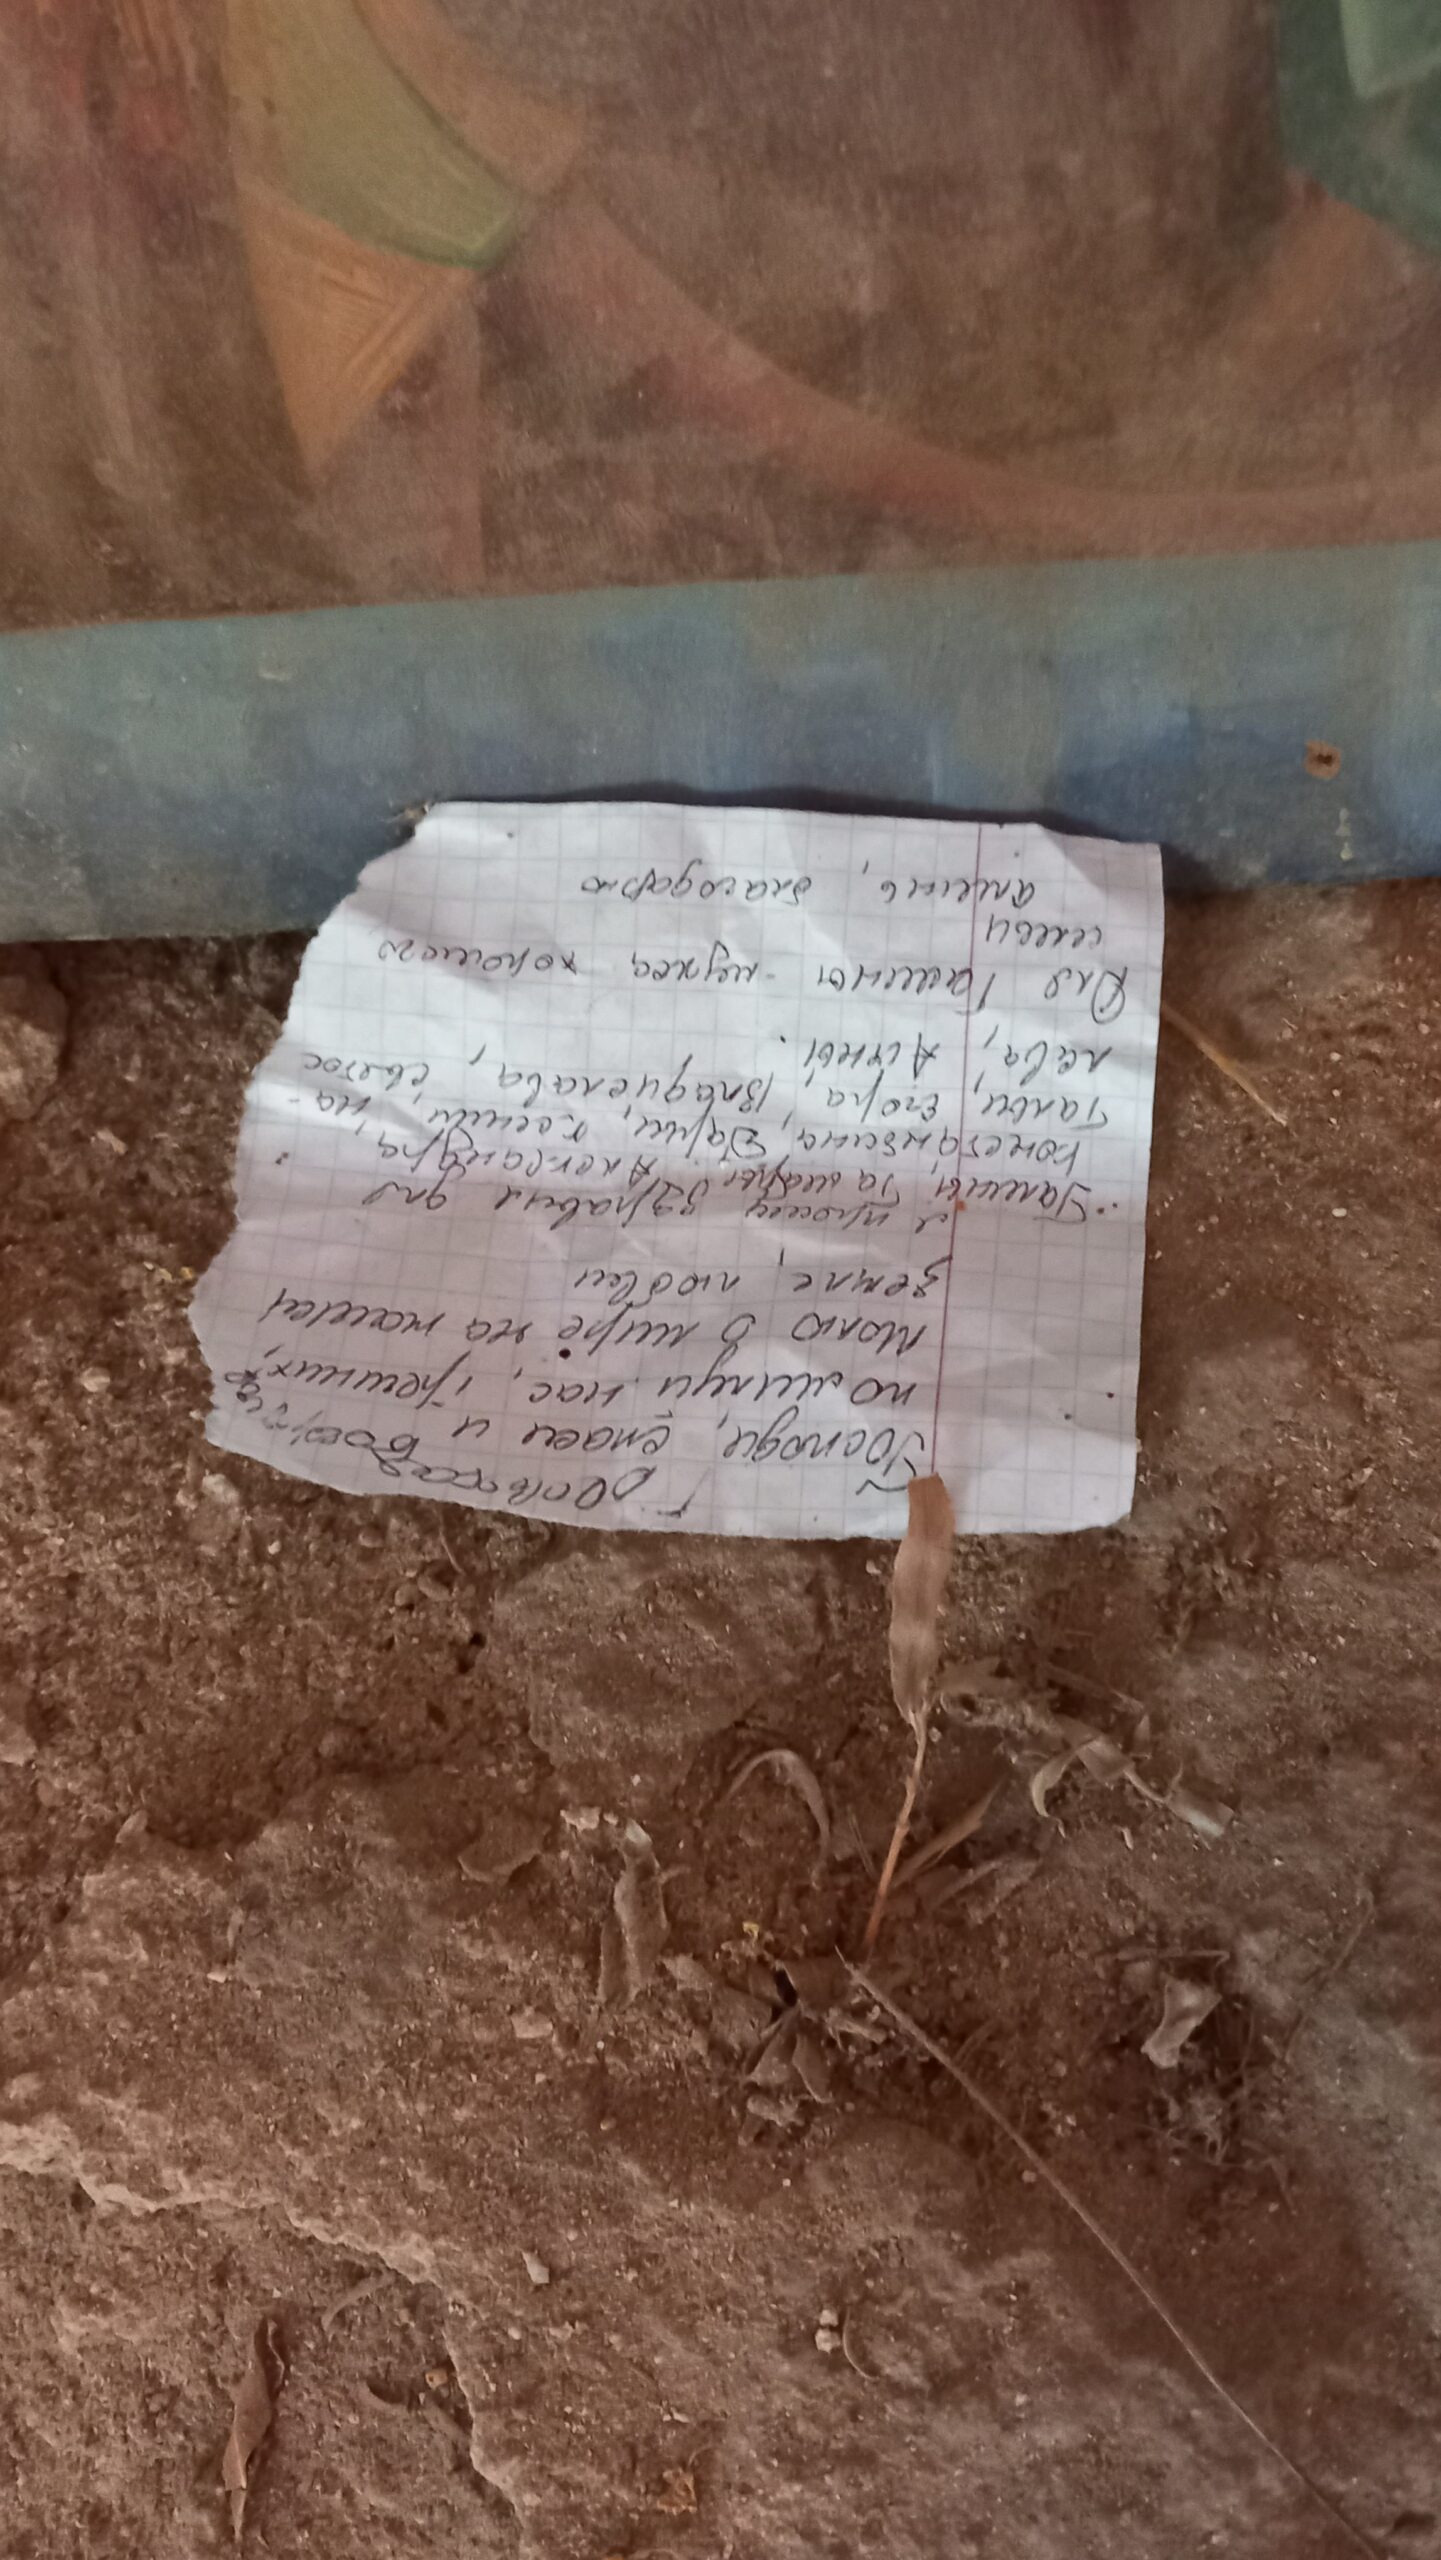 Господи, спаси и
помилуй нас, грешных,
молю о мире на нашей
земле, любви
и прошу здравия для
Галины, Тамары, Александра,
Константина, Дарьи, Ксении, На-
тальи, Егора, Владислава, Святос
лава, Алины.
Для Галины - мужа, хорошего
семьи
аминь, благодарю